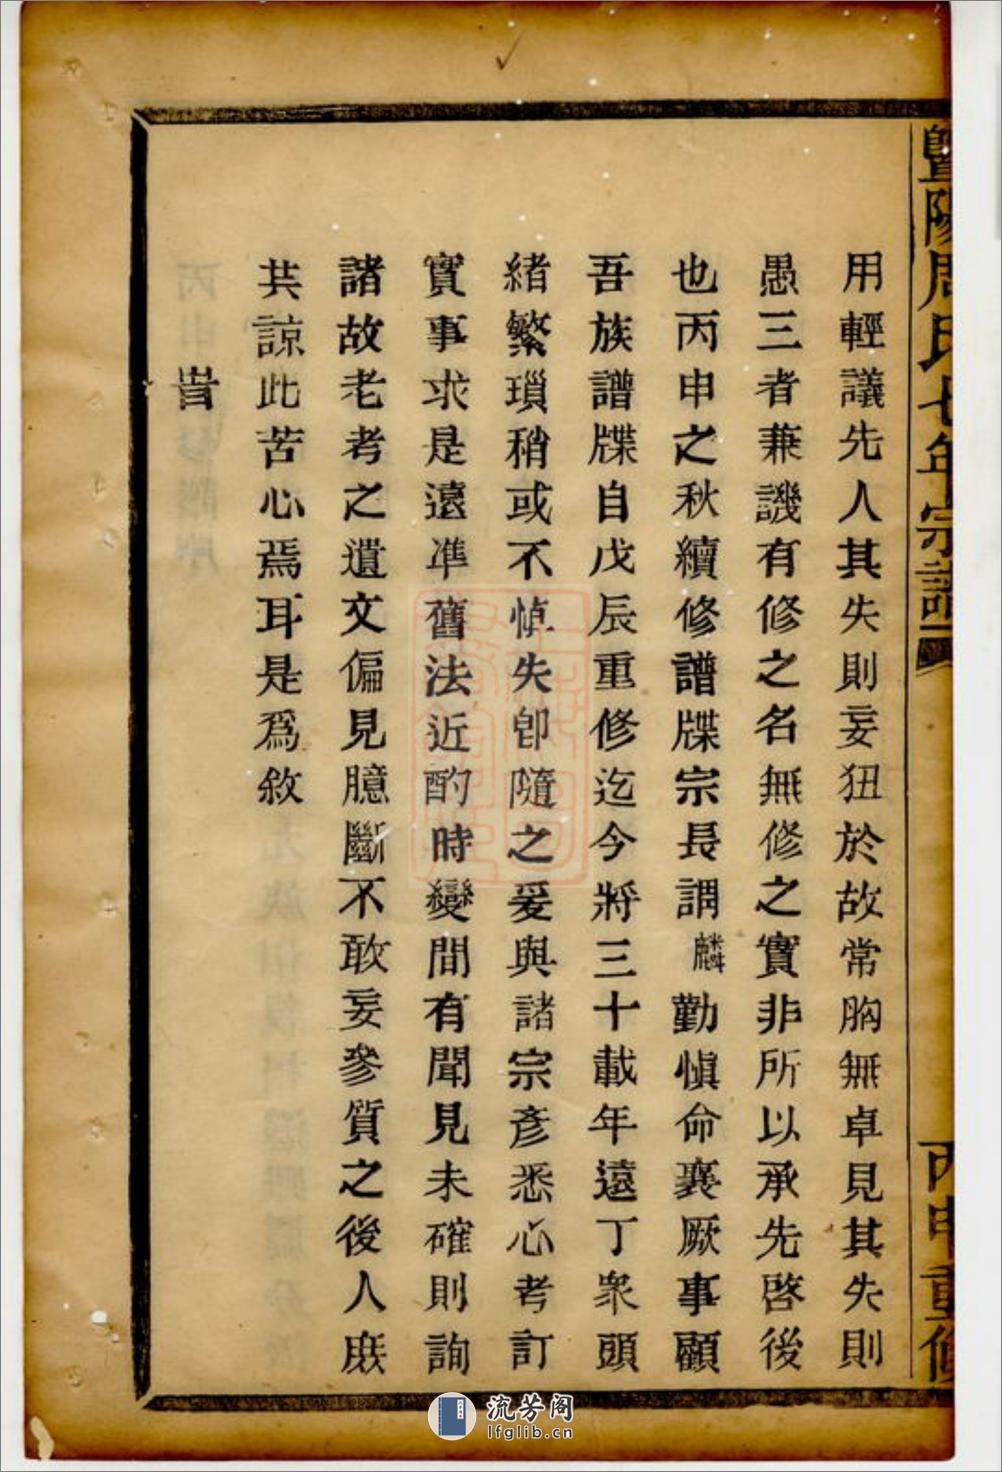 暨陽周氏七年宗譜
丙申重修
用輕議先人其失則妄狃於故常胸無卓見其失則
愚三者兼譏有修之名無修之實非所以承先啓後
也丙申之秋續修譜牒宗長謂麟勤慎命襄厥事顧
吾族譜牒自戊辰重修迄今將三十載年遠丁衆頭
緒繁瑣稍或不悼失卽隨之爰與諸宗彥悉心考訂
實事求是遠準舊法近酌時變間有聞見未確則詢
諸故老考之遺文偏見臆斷不敢妄參質之後人庶
共諒此苦心焉耳是爲敘
流芳阁
lfglib.cn